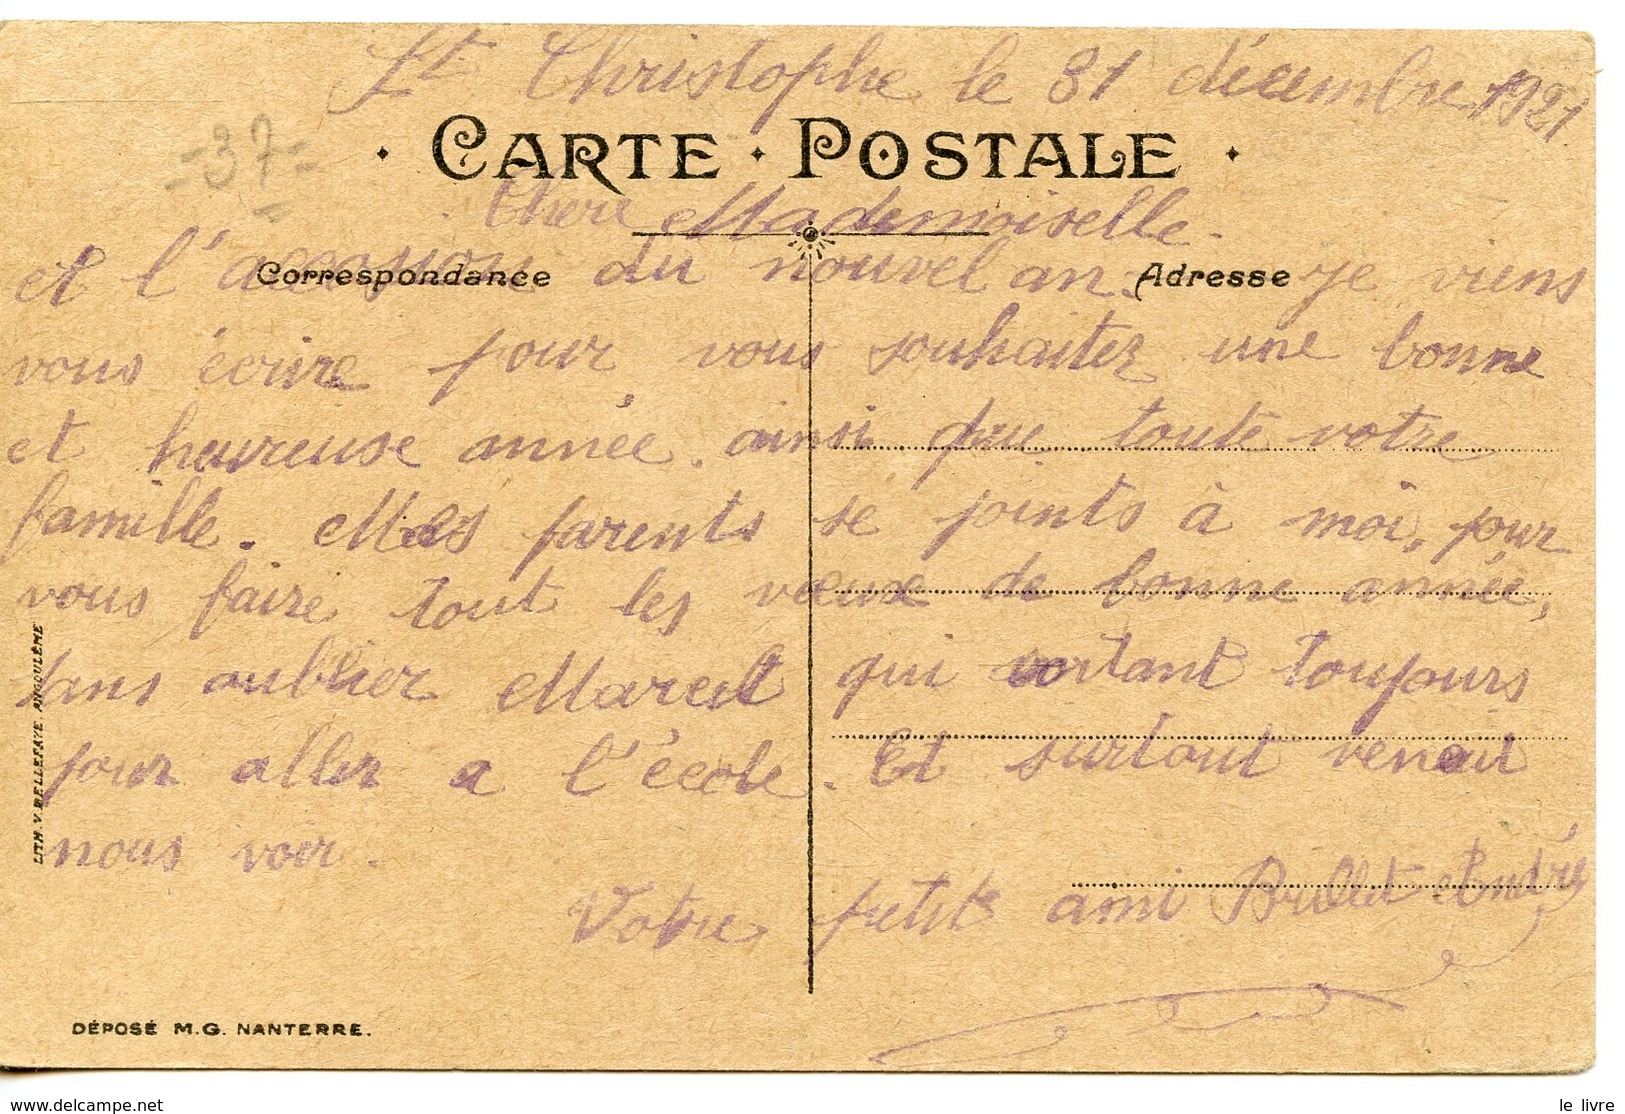 St Christophe le 31 décembre 1921
-37-
CARTE POSTALE
Chere Mademoiselle.
Correspondance
Adresse
et l'accasion du nouvel an. je viens
vous écrire pour, vous souhaiter une bonne
et heureuse année. ainsi que toute votre
famille. Mes parents se joints à moi, pour
vous faire tout les vœux de bonne année,
sans oublier Marcel qui vortant toujours
pour aller a l'école. Et surtout venait
nous voir.
Votre petit ami Brillet André
LITH. V. BELLEFAYE ANGOULÊME
DÉPOSÉ M.G. NANTERRE.
www.delcampe.net
le livre